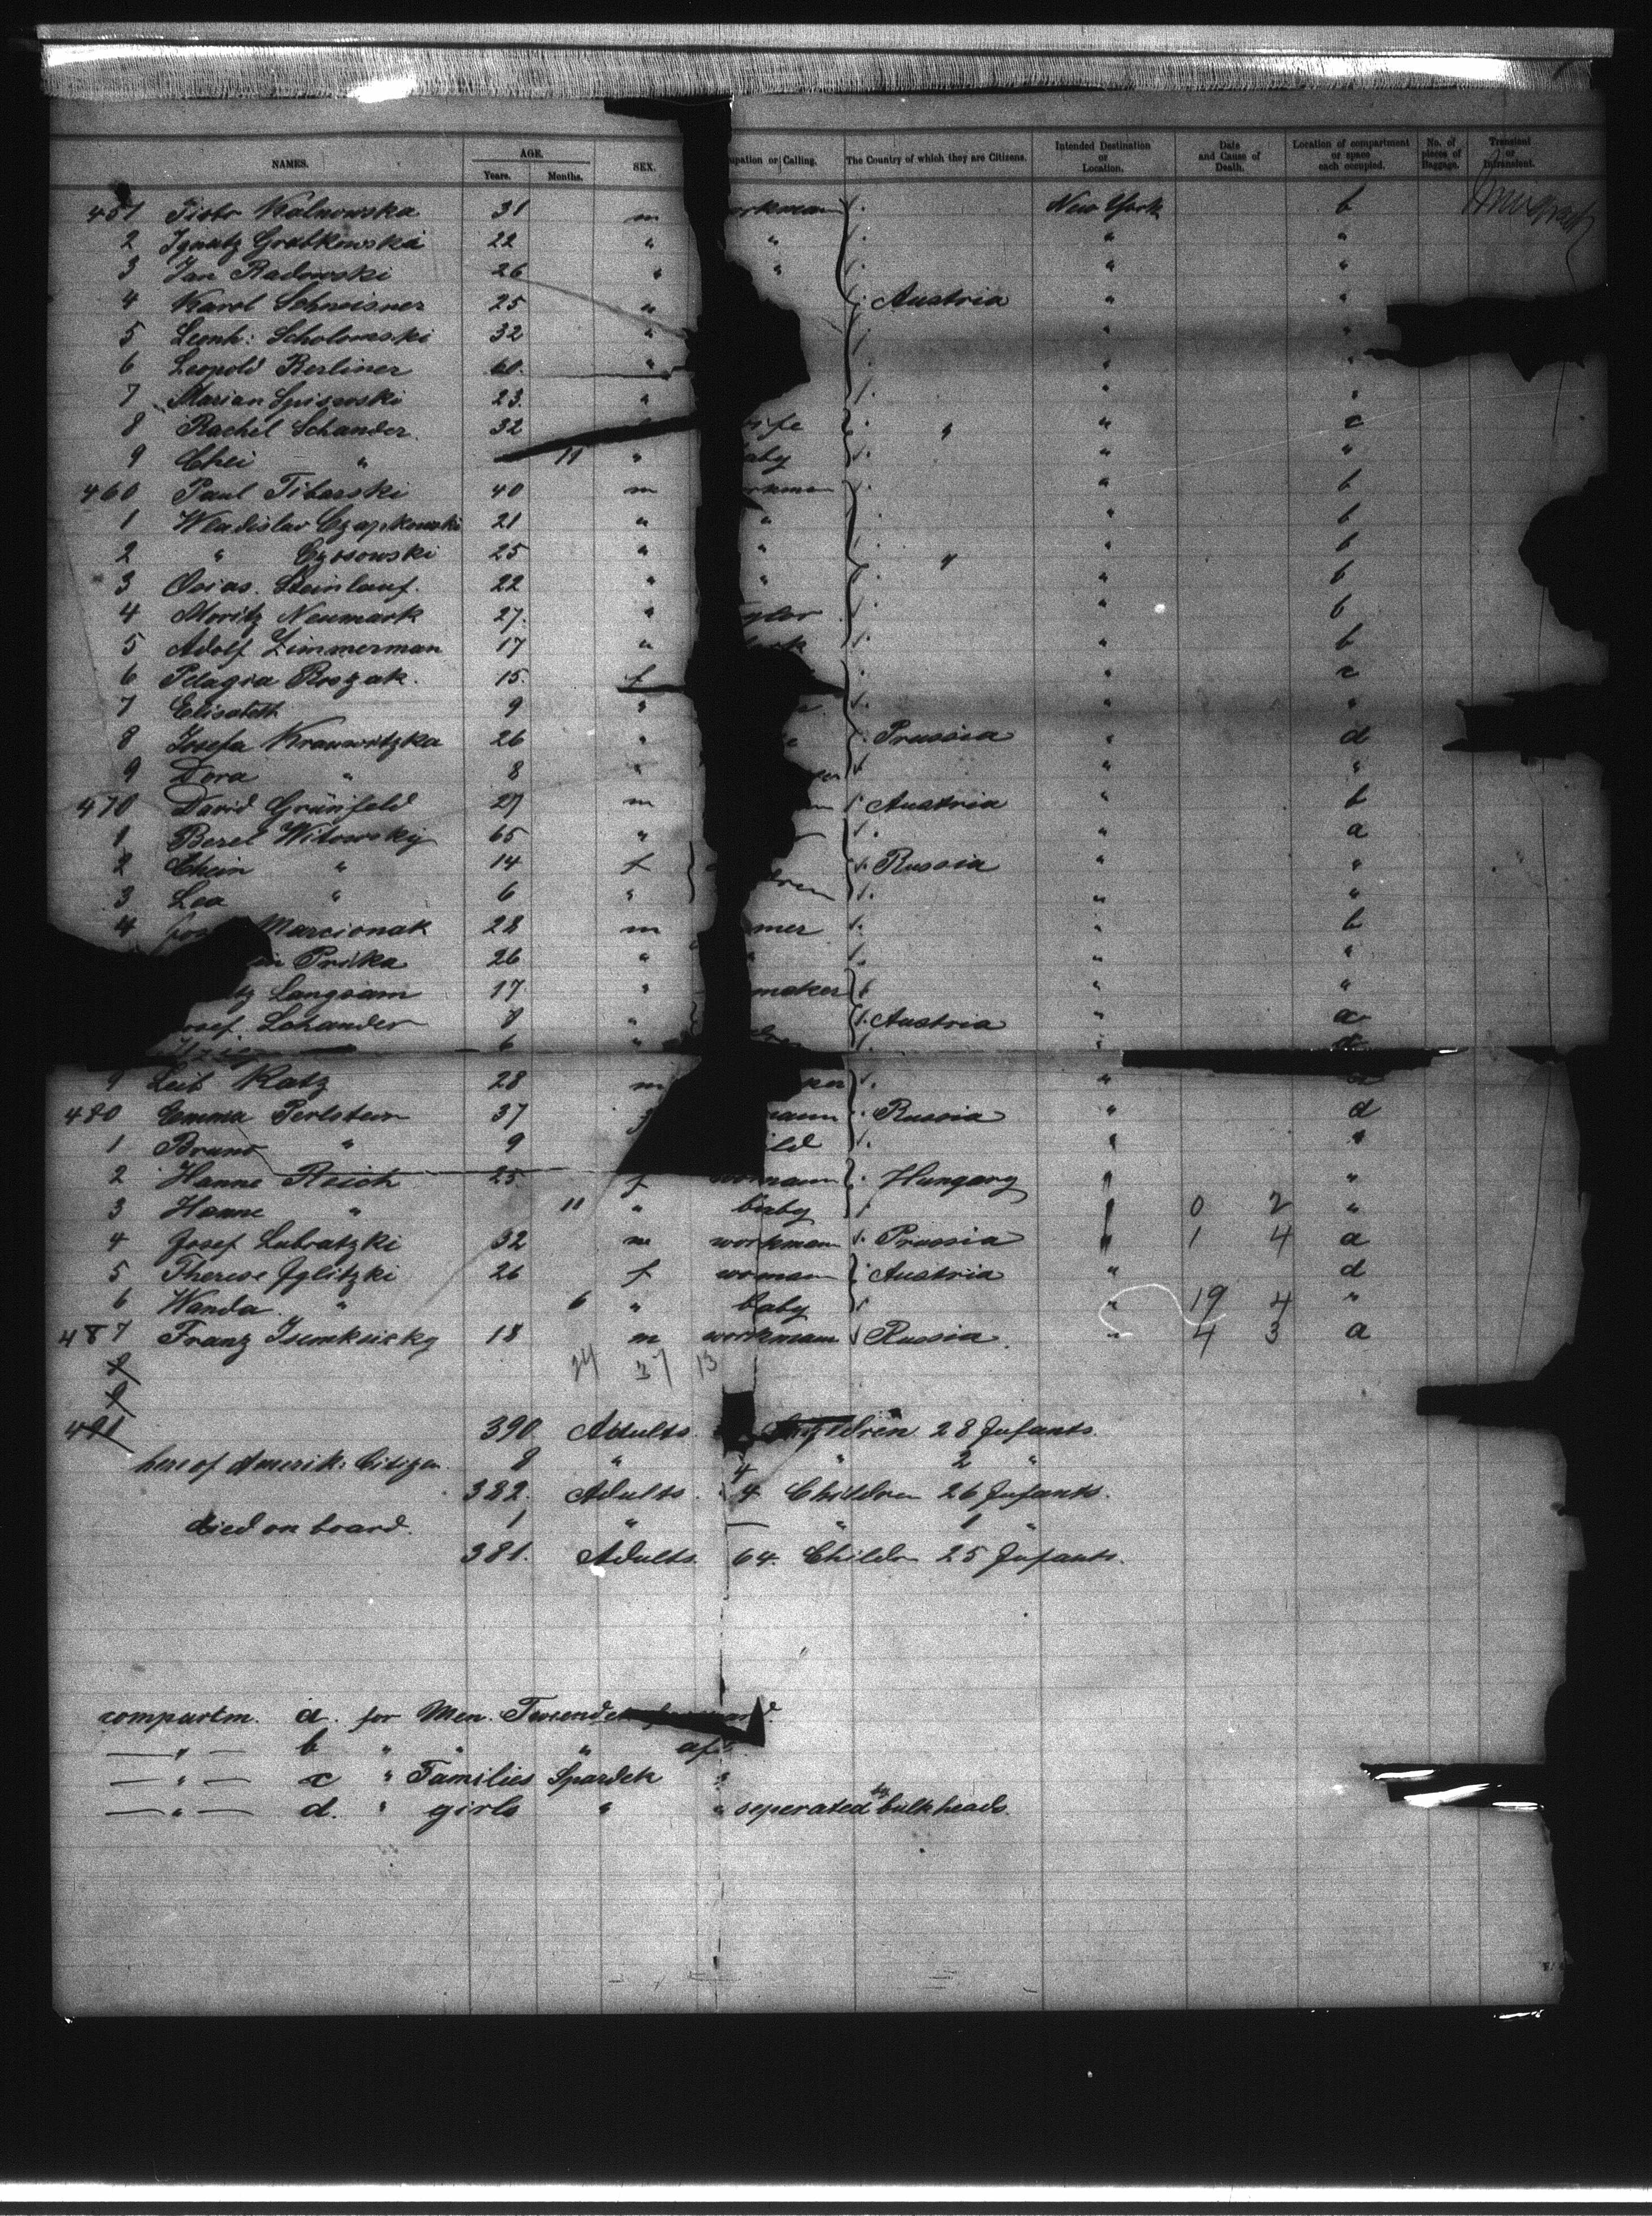 NAMES. AGE. Years. Months. SEX. upation or Calling. The Country of which they are Citizens. Intended Destination or Location. Date and Cause of Death. Location of compartment or space each occupied. No. of pieces of Baggage. Transient or Intransient.
451 Piotr Kalnowska 31 m orkman New York b
2 Ignatz Grabkowska 22 " " " "
3 Jan Radowski 26 " " " "
4 Karol Schneisner 25 " Austria " "
5 Leonh: Scholomski 32 " " "
6 Leopold Berliner 60. " " "
7 Marian Spisewski 23. " " "
8 Rachel Schander. 32 ife " " c
9 Chei " 11 " aby " "
460 Paul Tibarski 40 m orkman " b
1 Wladislav Czapkowski 21 " " " b
2 " Czosowski 25 " " " " b
3 Osias. Steinlauf. 22 " " " b
4 Moritz Neumark 27. " " b
5 Adolf Zimmerman 17 " " b
6 Pelagia Roszak. 15. f " c
7 Elisabeth 9 " " "
8 Josefa Krauwitzka 26 " Prussia " d
9 Dora " 8 " " "
470 David Grünfeld 27 m Austria " b
1 Berel Witowsky 65 " " a
2 Chein " 14 f Russia " "
3 Lea " 6 " dren " "
4 Marcionak 28 m mer " b
Prika 26 " " " "
tz Langsam 17 " maker " "
osef Schander 8 " Austria " a
6 "
9 Leib Katz 28 m ker "
480 Emma Perlstein 37 mann Russia " d
1 Bruno " 9 ild " "
2 Hanne Reich 25 f womann Hungary " "
3 Hanne " 11 " baby " 0 2 "
4 Josef Lubratzki 32 m workman Prussia " 1 4 a
5 Therese Jglitzki 26 f woman Austria " d
6 Wanda. " 6 " baby " 19 4 "
487 Franz 18 m workman Russia. " 4 3 a
8
9
24 37 13
491 390 Adults. Children 28 Infants.
here of Amerik: Citizen. 8 " 4 " 2 "
382. Adults. 4 Children 26 Infants.
died on board. 1 " — " 1 "
381. Adults. 64. Childrn 25 Infants.
compartm. a. for Men. Tweendek
— " — b " " " aft
— " — c " Families Spardek "
— " — d. " girls " " seperated by bulkheads.